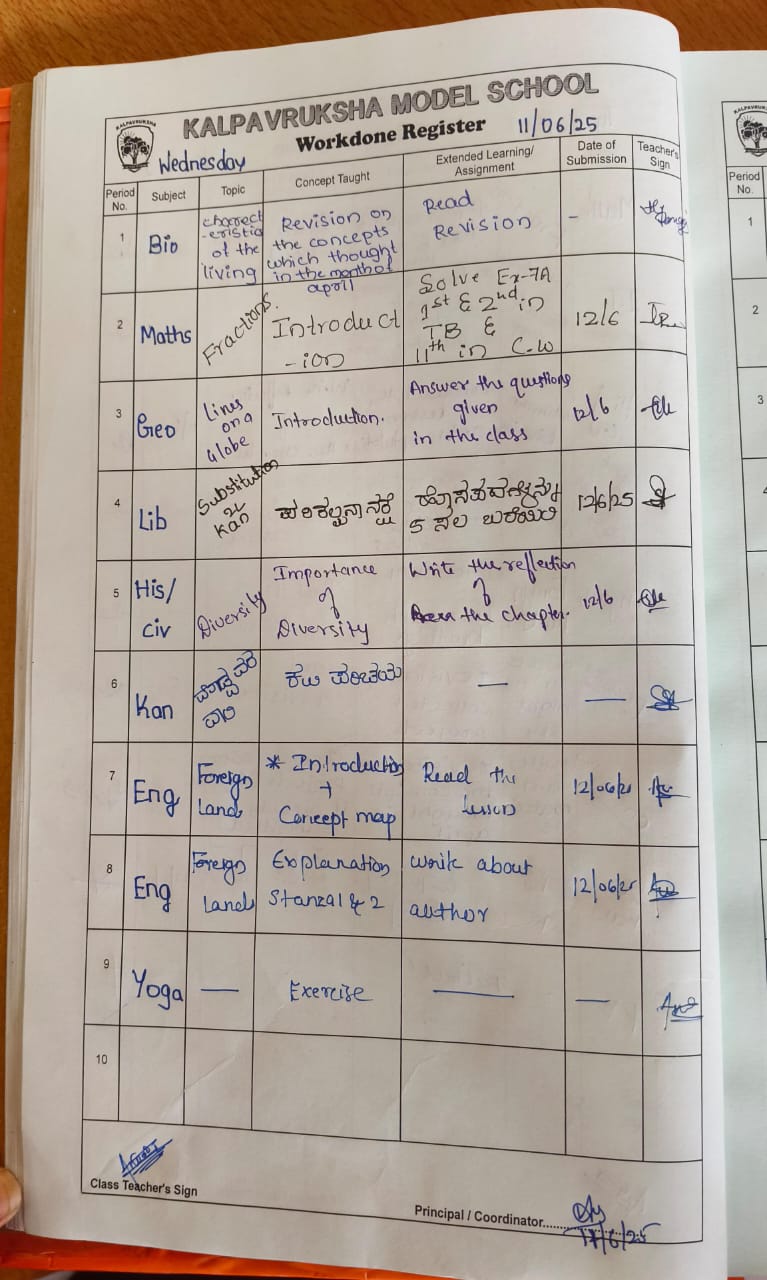 KALPAVRUKSHA MODEL SCHOOL
Workdone Register 11/06/25
Wednesday
Period No. Subject Topic Concept Taught Extended Learning/ Assignment Date of Submission Teacher's Sign
1 Bio charect -eristic of the living Revision on the concepts which thought in the month of april Read Revision -
2 Maths Fractions. Introduct -ion Solve Ex-7A 1st & 2nd in TB & 11th in C.W 12/6
3 Geo Lines on a Globe Introduction. Answer the questions given in the class 12/6
4 Lib Substitution Kan 5 ಸಲ ಬರೆಯಿರಿ 12/6/25
5 His/ Civ Diversity Importance of Diversity Write the reflection of the chapter. 12/6
6 Kan ಕವಿ ಪರಿಚಯ — —
7 Eng Foreign Lands * Introduction + Concept map Read the lesson 12/06/25
8 Eng Foreign Lands Explanation Stanza 1 & 2 write about author 12/06/25
9 Yoga — Exercise — —
10
Class Teacher's Sign
Principal / Coordinator
17/6/25
Period No.
1
2
3